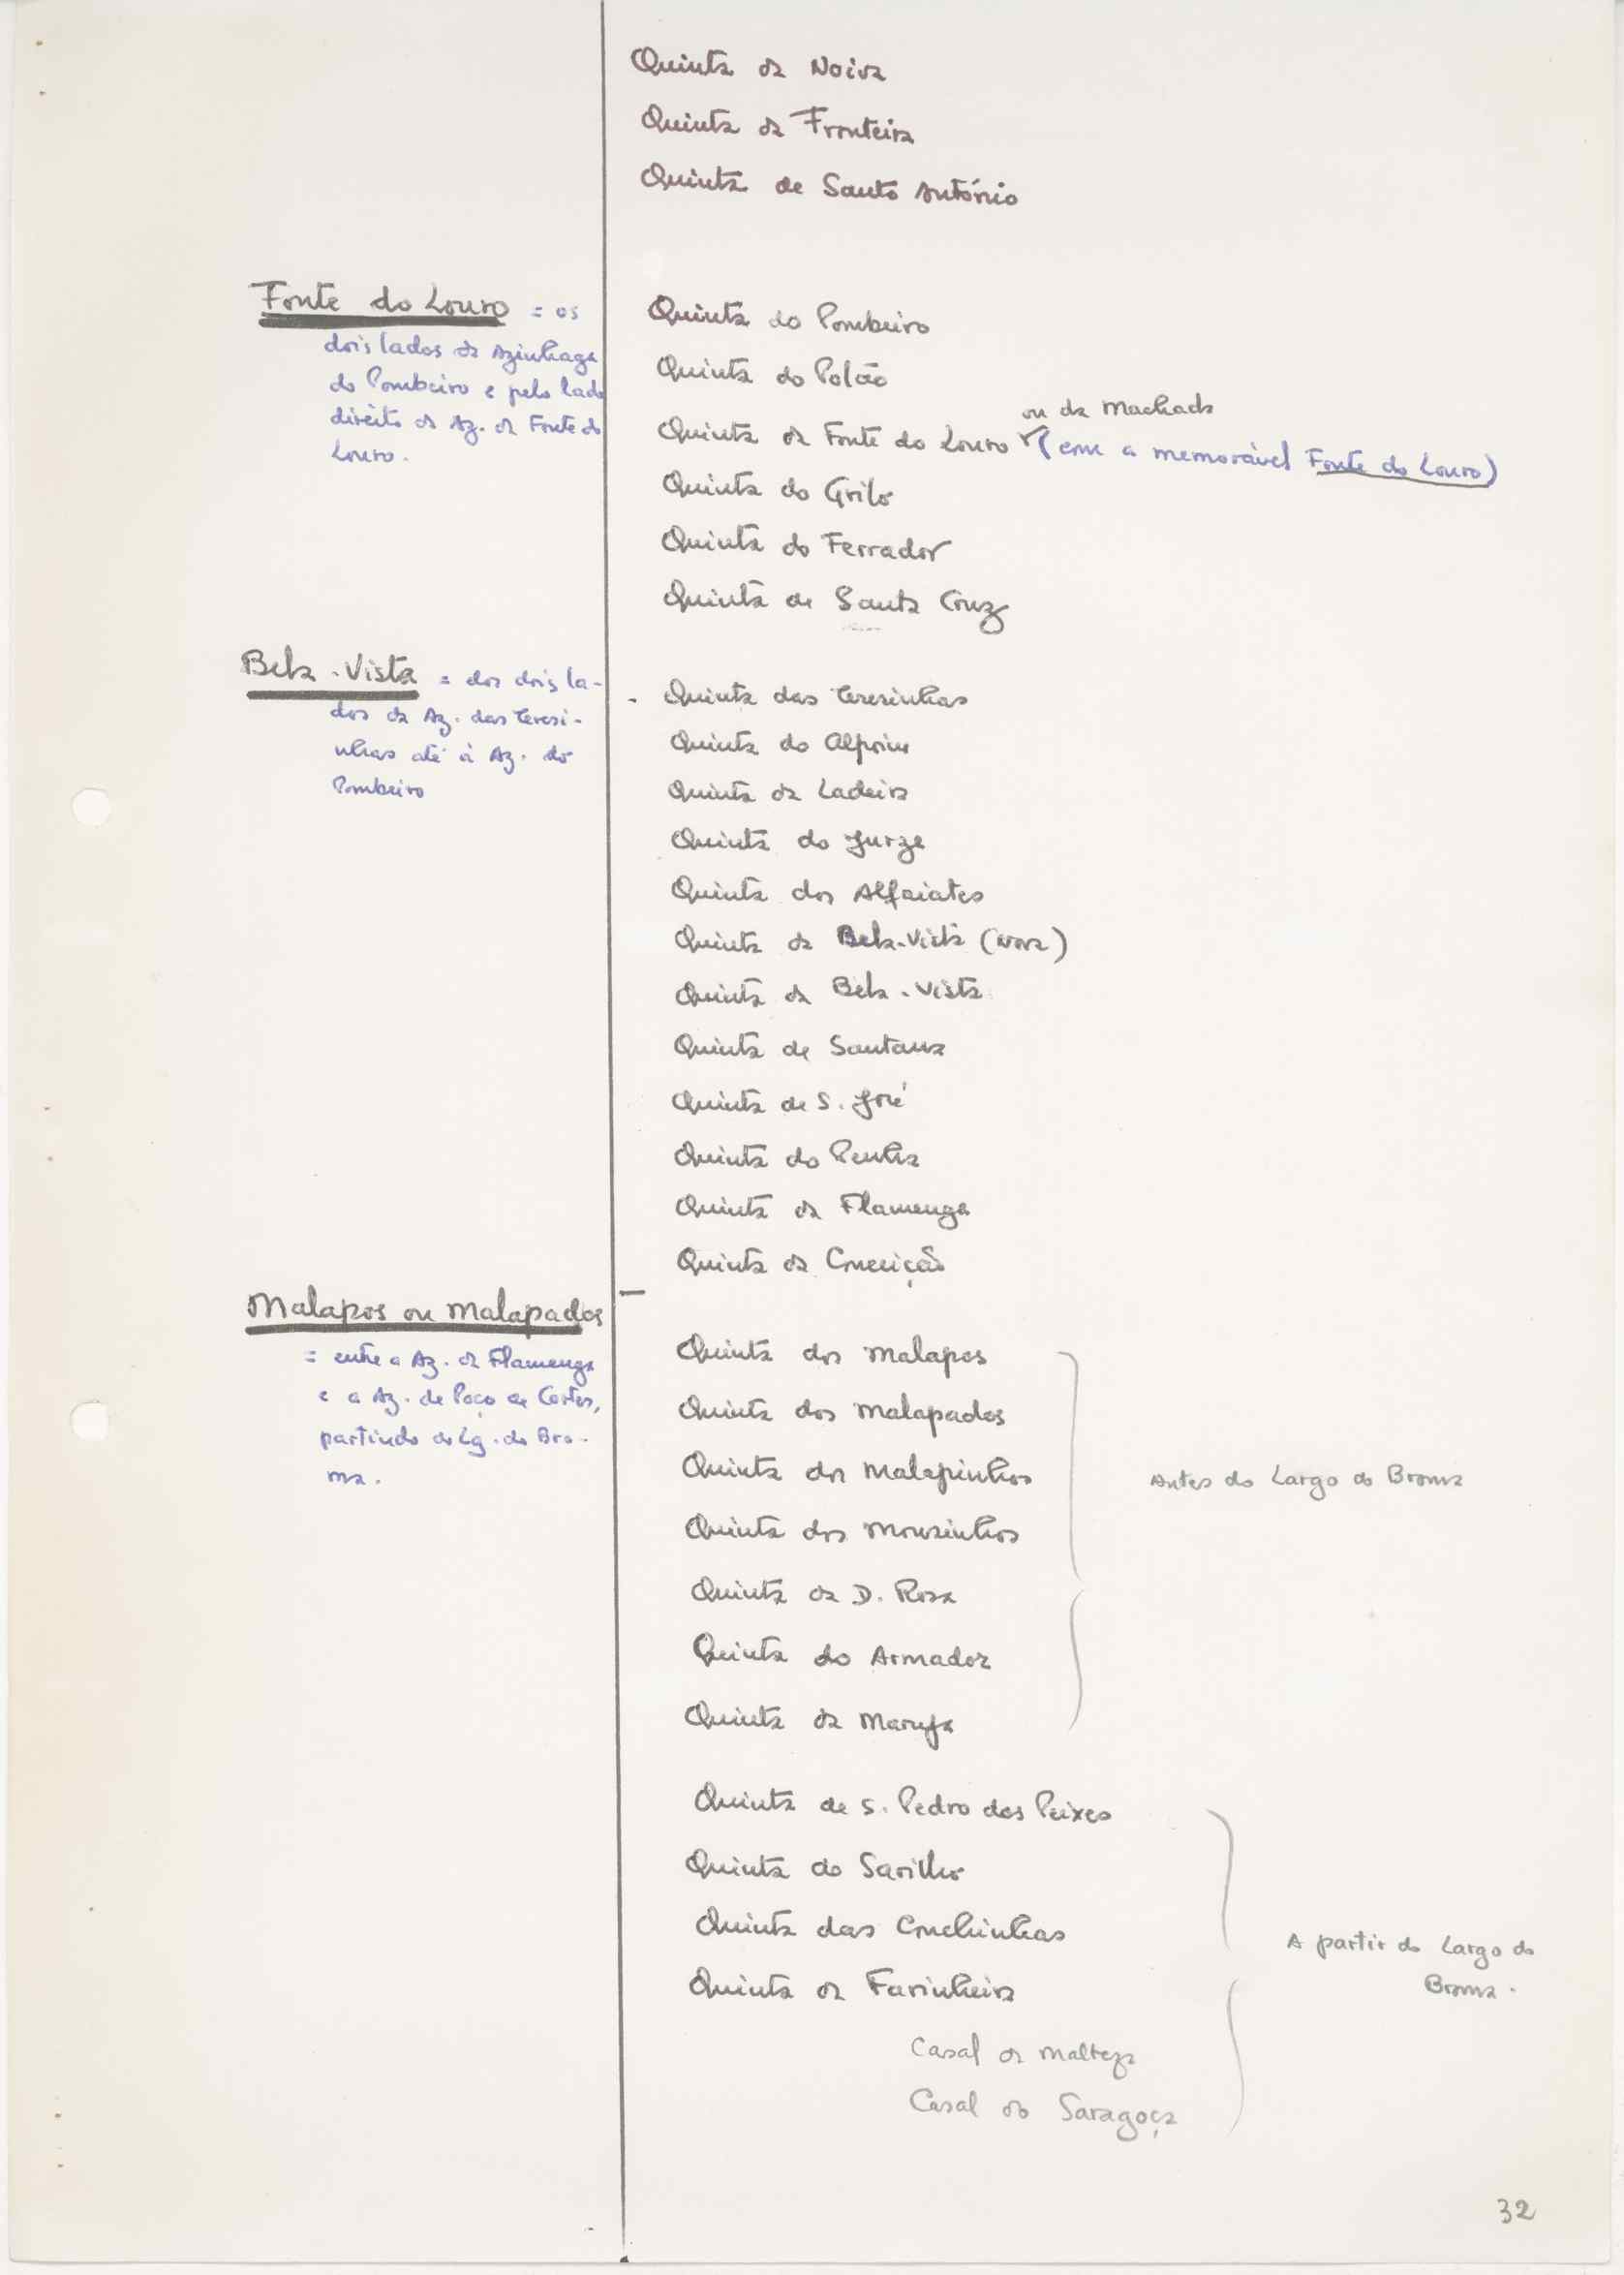 Quinta da Noiva
Quinta da Fronteira
Quinta de Santo António
Fonte do Louro = os
dois lados da Azinhaga
do Pombeiro e pelo lado
direito da Az. da Fonte do
Louro.
Quinta do Pombeiro
Quinta do Polão
ou da Machada
Quinta da Fonte do Louro (com a memorável Fonte do Louro)
Quinta do Grilo
Quinta do Ferrador
Quinta de Santa Cruz
Bela-Vista = dos dois la-
dos da Az. das Teresi-
nhas até à Az. do
Pombeiro
- Quinta das Teresinhas
Quinta do Alpoim
Quinta da Ladeira
Quinta do Jurze
Quinta dos Alfaiates
Quinta da Bela-Vista (nova)
Quinta da Bela-Vista
Quinta de Santana
Quinta de S. José
Quinta do Penha
Quinta da Flamenga
Quinta da Conceição
Malapos ou Malapados
= entre a Az. da Flamenga
e a Az. de Poço de Cortes,
partindo do Lg. do Bro-
ma.
Quinta dos Malapos
Quinta dos Malapados
Quinta dos Malapinhos
Quinta dos Mousinhos
Antes do Largo do Broma
Quinta da D. Rosa
Quinta do Armador
Quinta da Marufa
Quinta de S. Pedro dos Peixes
Quinta do Sarilho
Quinta das Conchinhas
Quinta da Farinheira
A partir do Largo do
Broma.
Casal da Malteza
Casal do Saragoça
32